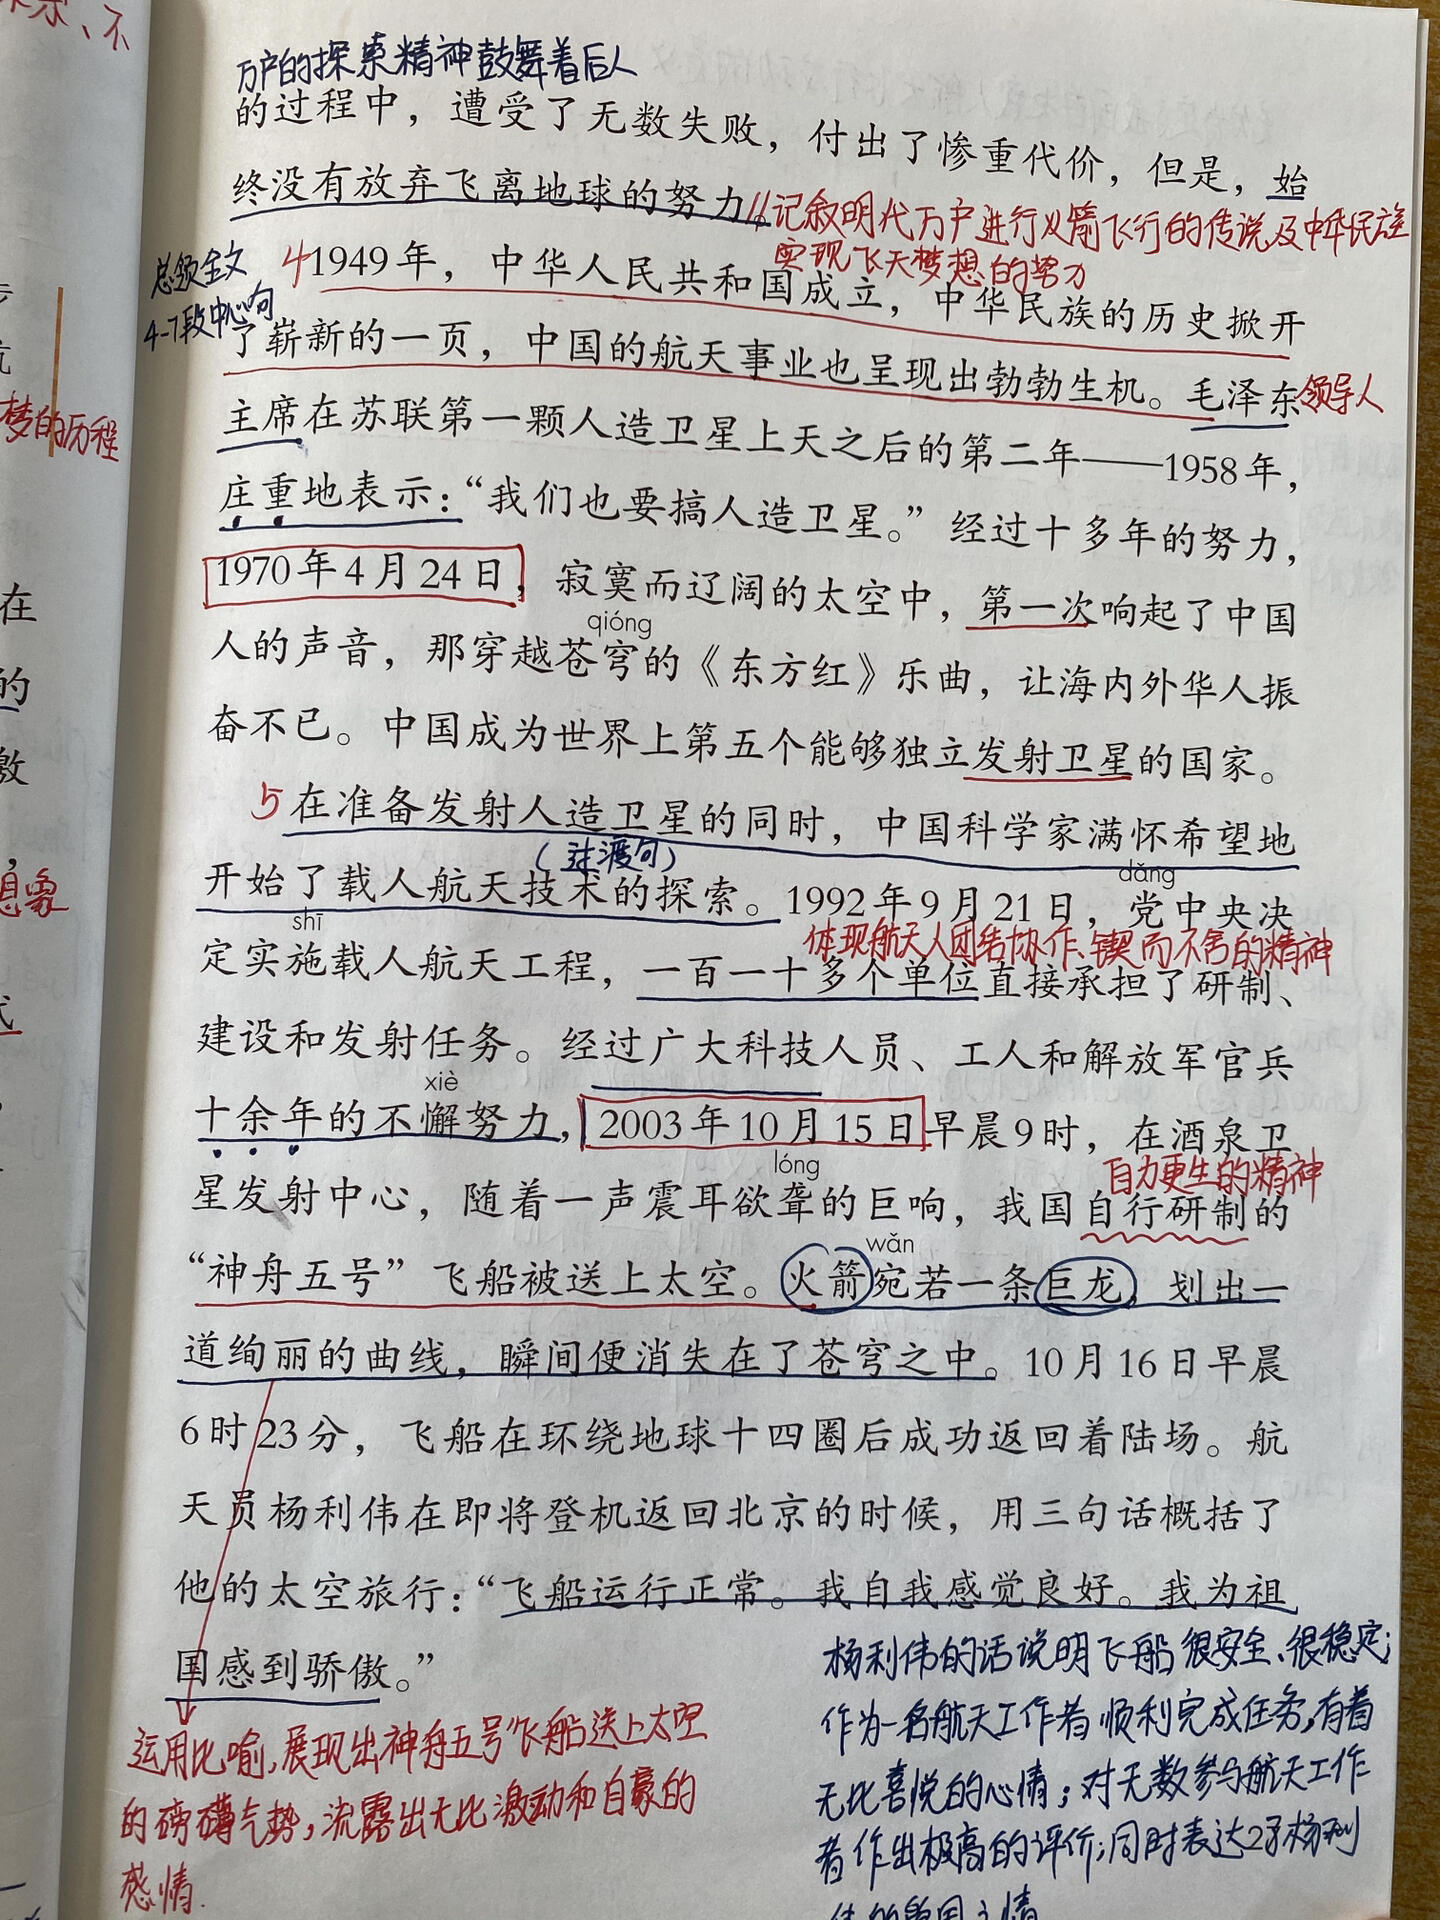 万户的探索精神鼓舞着后人
的过程中，遭受了无数失败，付出了惨重代价，但是，始
终没有放弃飞离地球的努力。
记叙明代万户进行火箭飞行的传说及中华民族
实现飞天梦想的努力
总领全文
4-7段中心句
4 1949年，中华人民共和国成立，中华民族的历史掀开
了崭新的一页，中国的航天事业也呈现出勃勃生机。毛泽东
领导人
主席在苏联第一颗人造卫星上天之后的第二年——1958年，
庄重地表示：“我们也要搞人造卫星。”经过十多年的努力，
1970年4月24日，寂寞而辽阔的太空中，第一次响起了中国
qióng
人的声音，那穿越苍穹的《东方红》乐曲，让海内外华人振
奋不已。中国成为世界上第五个能够独立发射卫星的国家。
5 在准备发射人造卫星的同时，中国科学家满怀希望地
（过渡句）
dǎng
开始了载人航天技术的探索。1992年9月21日，党中央决
shī
体现航天人团结协作、锲而不舍的精神
定实施载人航天工程，一百一十多个单位直接承担了研制、
建设和发射任务。经过广大科技人员、工人和解放军官兵
xiè
十余年的不懈努力，2003年10月15日早晨9时，在酒泉卫
lóng
自力更生的精神
星发射中心，随着一声震耳欲聋的巨响，我国自行研制的
wǎn
“神舟五号”飞船被送上太空。火箭宛若一条巨龙，划出一
道绚丽的曲线，瞬间便消失在了苍穹之中。10月16日早晨
6时23分，飞船在环绕地球十四圈后成功返回着陆场。航
天员杨利伟在即将登机返回北京的时候，用三句话概括了
他的太空旅行：“飞船运行正常。我自我感觉良好。我为祖
国感到骄傲。”
运用比喻，展现出神舟五号飞船送上太空
的磅礴气势，流露出无比激动和自豪的
感情.
杨利伟的话说明飞船很安全、很稳定；
作为一名航天工作者顺利完成任务，有着
无比喜悦的心情；对无数参与航天工作
者作出极高的评价；同时表达了杨利
梦的历程
在
的
想象